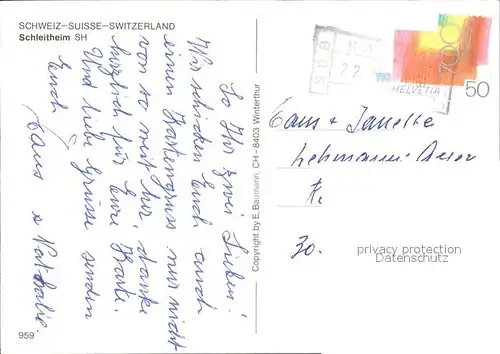 SCHWEIZ–SUISSE–SWITZERLAND
Schleitheim SH
So Ihr zwei Lieben!
Wir schicken Euch auch
einen Kartengruss nur nicht
von so weit her, danke
herzlich für Eure Karte.
Und liebe Grüsse senden
Euch
Claus & Nathalie.
959
Copyright by E. Baumann, CH - 8403 Winterthur
SBB
22
700
HELVETIA
50
Claus & Janette
Lehmann-
30.
privacy protection
Datenschutz